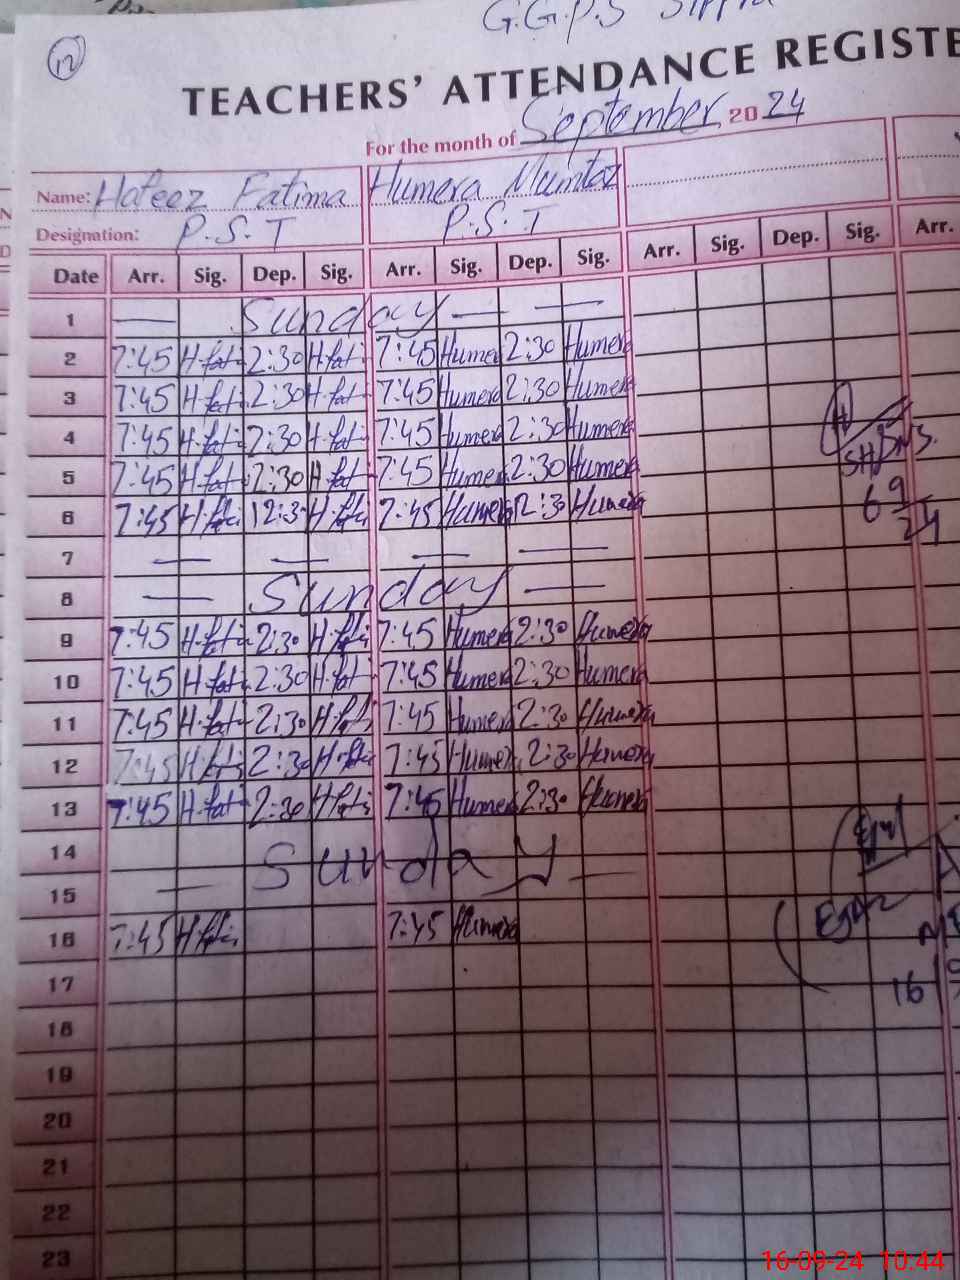 12
G.G.P.S
TEACHERS' ATTENDANCE REGISTE
For the month of September 2024
Name: Hafeez Fatima Humera Mumtaz
Designation: P.S.T P.S.T
Date Arr. Sig. Dep. Sig. Arr. Sig. Dep. Sig. Arr. Sig. Dep. Sig. Arr.
1 — Sunday — —
2 7:45 H.fati 2:30 H.fati 7:45 Humera 2:30 Humera
3 7:45 H.fati 2:30 H.fati 7:45 Humera 2:30 Humera
4 7:45 H.fati 2:30 H.fati 7:45 Humera 2:30 Humera
5 7:45 H.fati 2:30 H.fati 7:45 Humera 2:30 Humera
6 7:45 H.fati 12:30 H.fati 7:45 Humera 12:30 Humera
7 — — — —
8 — Sunday —
9 7:45 H.fati 2:30 H.fati 7:45 Humera 2:30 Humera
10 7:45 H.fati 2:30 H.fati 7:45 Humera 2:30 Humera
11 7:45 H.fati 2:30 H.fati 7:45 Humera 2:30 Humera
12 7:45 H.fati 2:30 H.fati 7:45 Humera 2:30 Humera
13 7:45 H.fati 2:30 H.fati 7:45 Humera 2:30 Humera
14
— Sunday —
15
16 7:45 H.fati 7:45 Humera
17
18
19
20
21
22
23
6 9
24
16
16-09-24 10:44